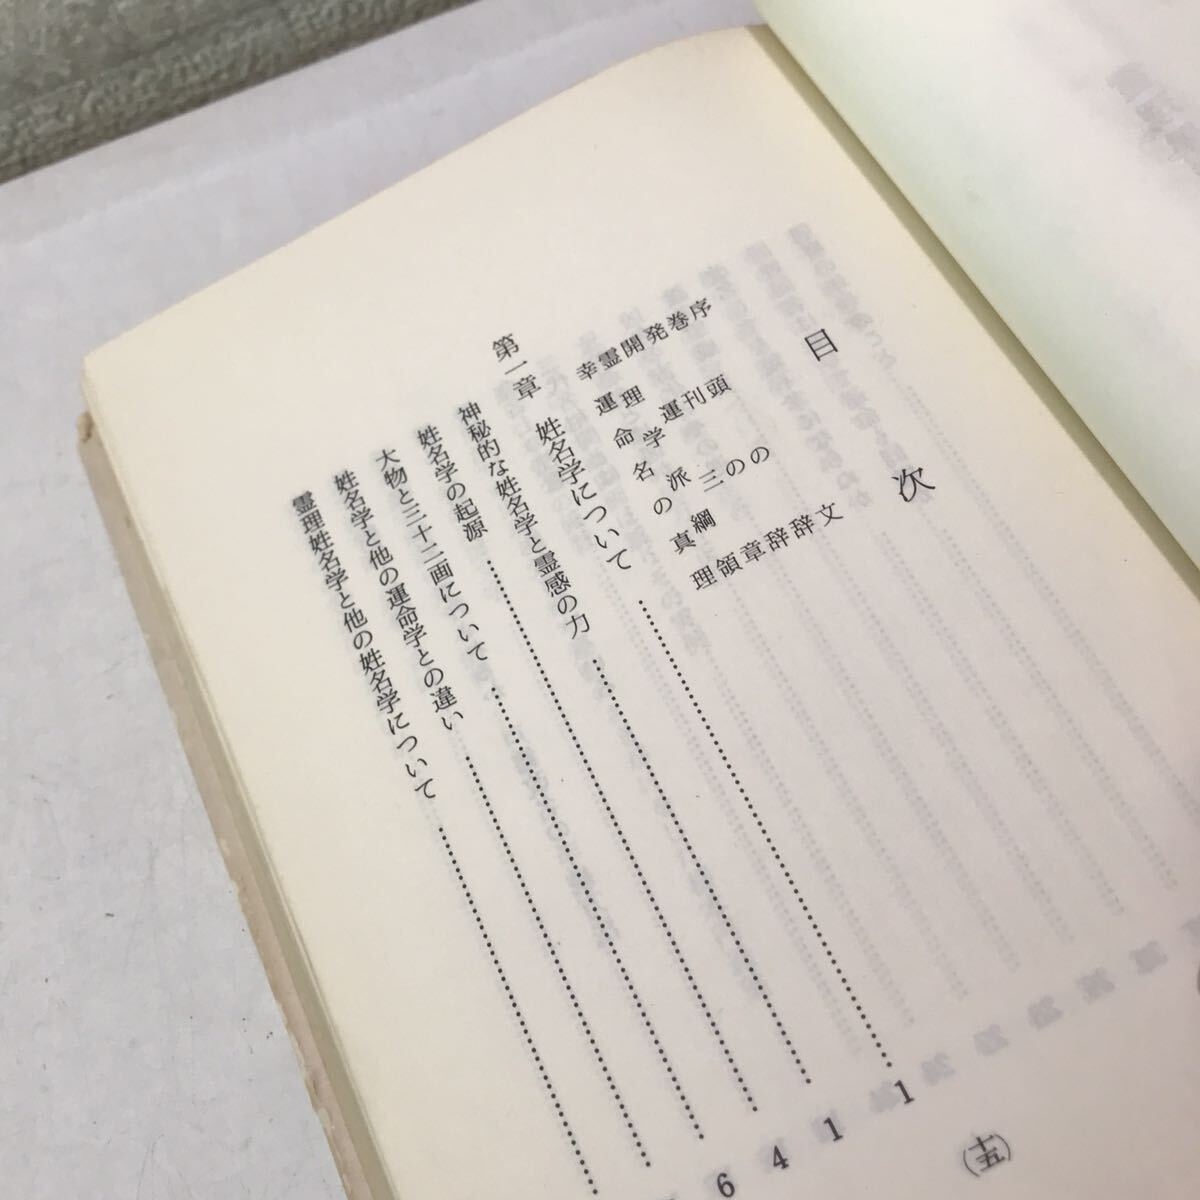 目次
序文
巻頭の辞
発刊の辞
開運三章
霊理学派綱領
幸運命名の真理
第一章 姓名学について……………………1
神秘的な姓名学と霊感の力……………………1
姓名学の起源……………………4
大物と三十二画について……………………6
姓名学と他の運命学との違い……………………
霊理姓名学と他の姓名学について……………………
(十五)